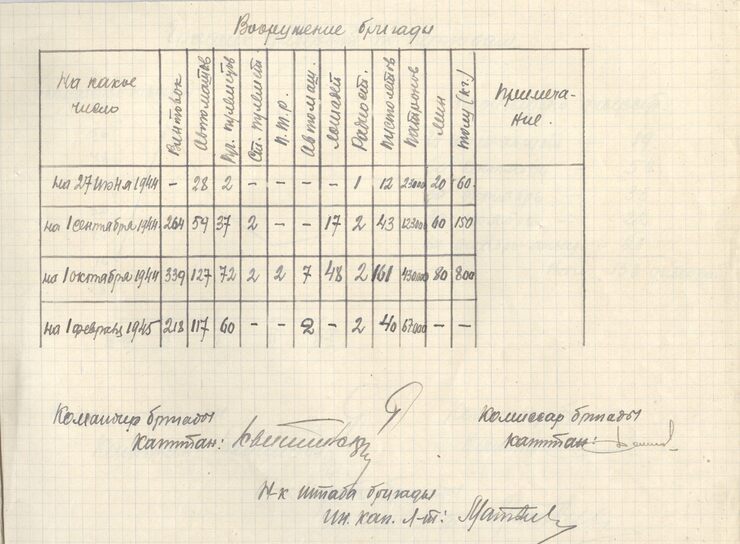 Вооружение бригады
На какое число | Винтовок | Автоматов | Руч. пулеметов | Ст. пулемет | П.т.р. | Автомаш. | Лошадей | Рацист. | Пистолетов | Патронов | Мин | Толу (кг.) | Примеча-ние.
на 27 июня 1944 | - | 28 | 2 | | | | | 1 | 12 | 23000 | 20 | 60-
на 1 сентября 1944 | 264 | 59 | 37 | 2 | - | - | 17 | 2 | 43 | 123000 | 60 | 150
на 1 октября 1944 | 339 | 127 | 72 | 2 | 2 | 7 | 48 | 2 | 161 | 430000 | 80 | 800
на 1 февраля 1945 | 218 | 117 | 60 | - | - | 2 | - | 2 | 40 | 67000 | - | -
Командир бригады
Капитан:
Комиссар бригады
Капитан:
Н-к штаба бригады
Ин. кап. л-т: